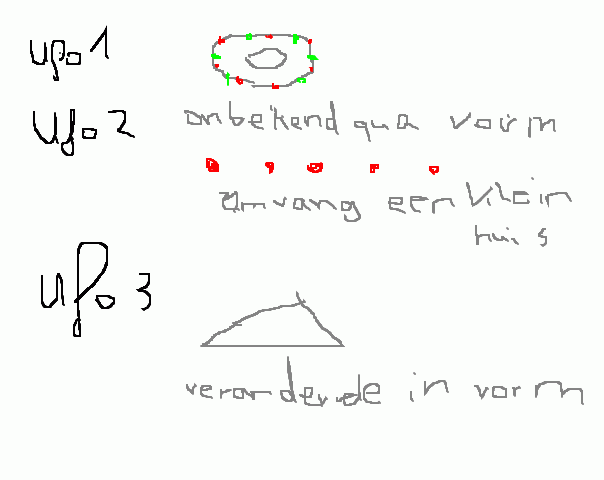 ufo 1
ufo 2 onbekend qua vorm
omvang een klein
huis
ufo 3
veranderde in vorm